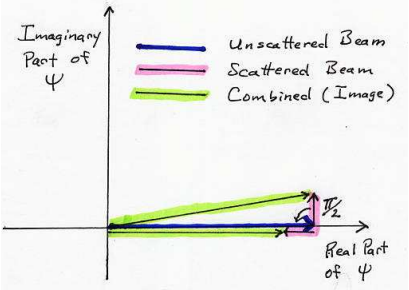 Imaginary
Part of
Ψ
Unscattered Beam
Scattered Beam
Combined (Image)
π/2
Real Part
of Ψ